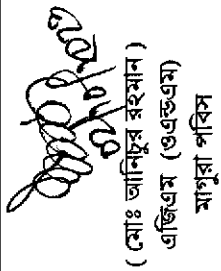 ( মোঃ আনিচুর রহমান )
এজিএম (ওএন্ডএম)
মাগুরা পবিস